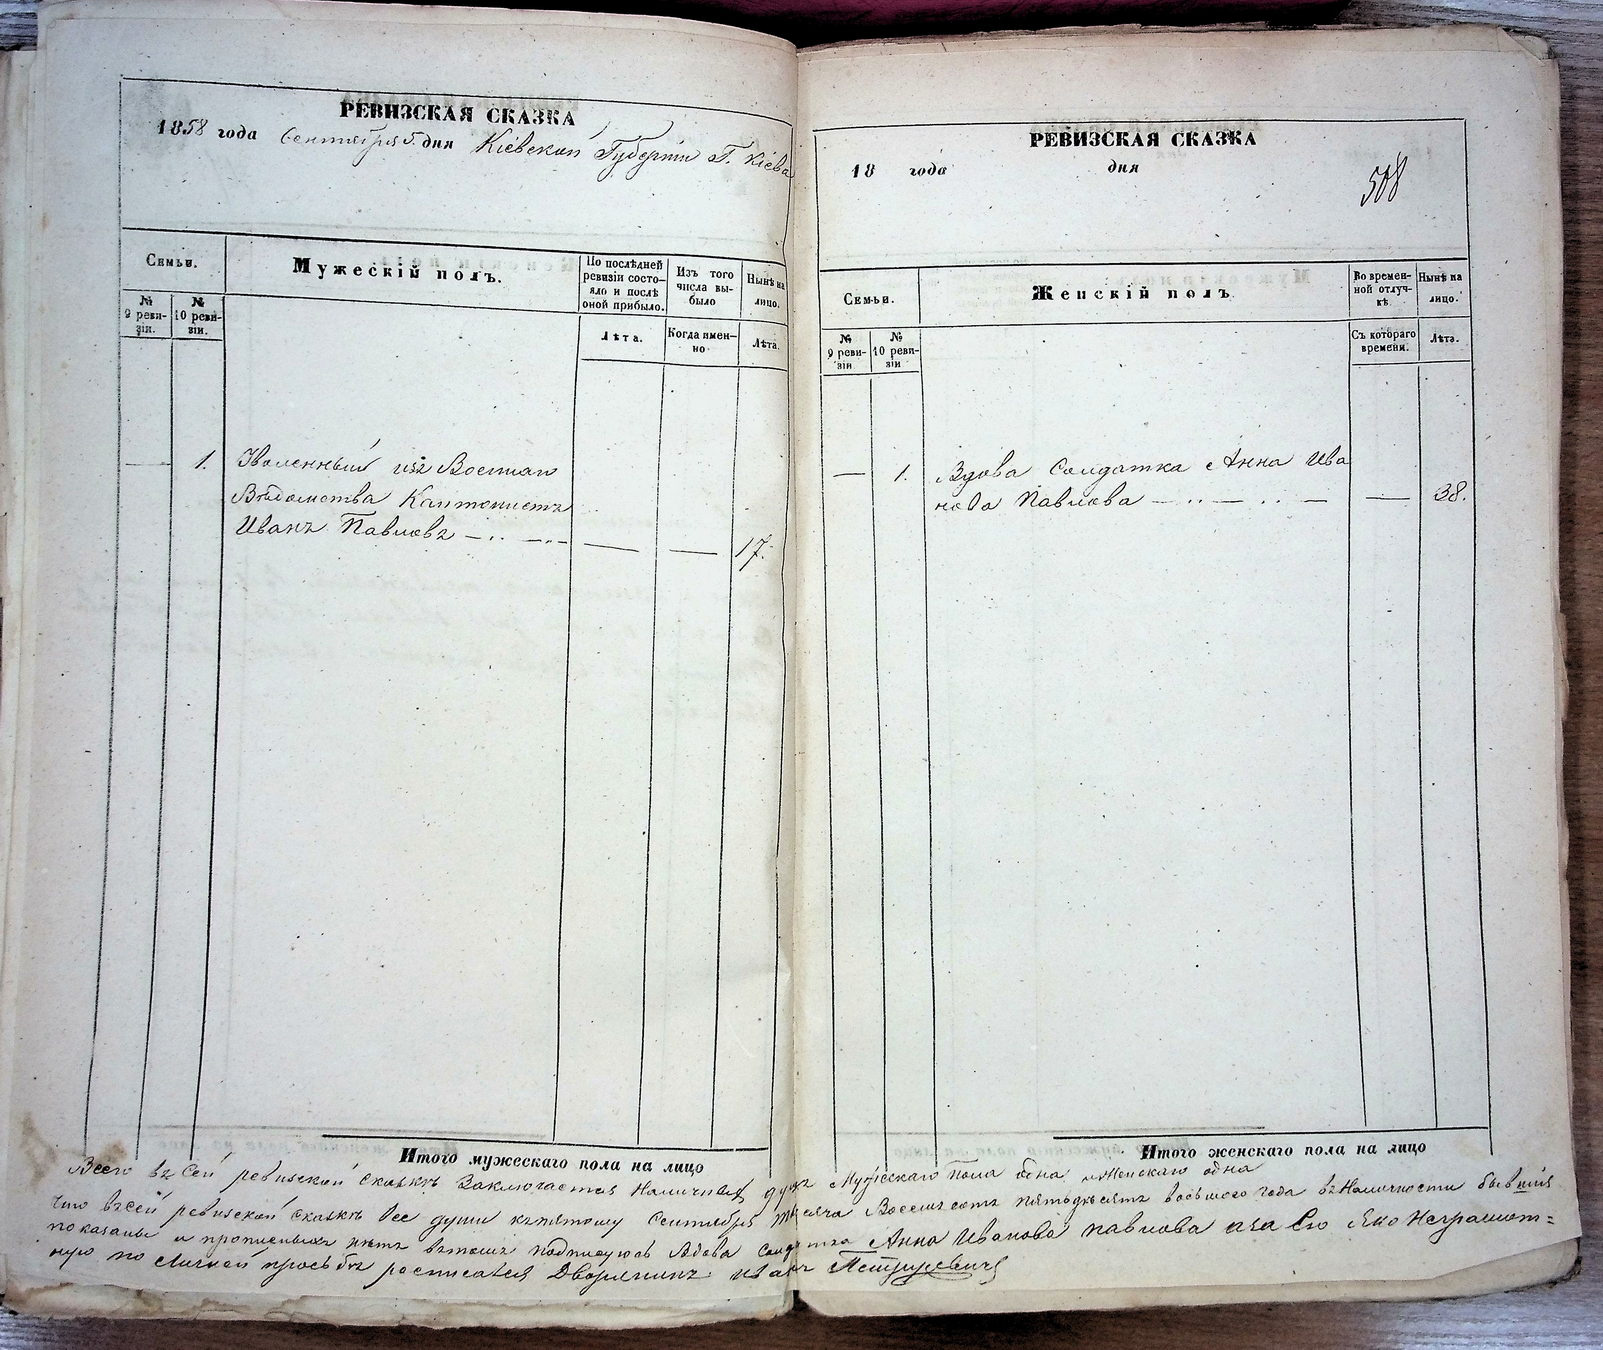 РЕВИЗСКАЯ СКАЗКА
1858 года Сентября 5. дня Кіевской Губерніи Г. Кіева
Семьи.
Мужескій полъ.
По послѣдней ревизіи состояло и послѣ оной прибыло.
Изъ того числа выбыло
Нынѣ на лицо.
№ 9 ревизіи.
№ 10 ревизіи.
Лѣта.
Когда именно
Лѣта.
— 1. Уволенный изъ Военнаго
Вѣдомства Кантонистъ
Иванъ Павловъ — — — 17.
Итого мужескаго пола на лицо
РЕВИЗСКАЯ СКАЗКА
18 года дня
508
Семьи.
Женскій полъ
Во временной отлучкѣ.
Нынѣ на лицо.
№ 9 ревизіи
№ 10 ревизіи
Съ котораго времени.
Лѣта.
— 1. Вдова Солдатка Анна Ива
нова Павлова — — — 38.
Итого женскаго пола на лицо
Всего въ сей ревизской сказкѣ Заключается Наличныхъ душъ Мужескаго Пола одна и Женскаго одна
Что въ сей ревизской сказкѣ все души къ пятому Сентября Тысяча Восемьсотъ пятьдесятъ восьмого года въ Наличности бывшія
показаны и прописныхъ нѣтъ въ томъ подписуюсь Вдова Солдатка Анна Иванова Павлова а за Ею Яко Неграмот=
ную по Личной прозьбѣ росписался Дворянинъ Иванъ Петрусевичъ